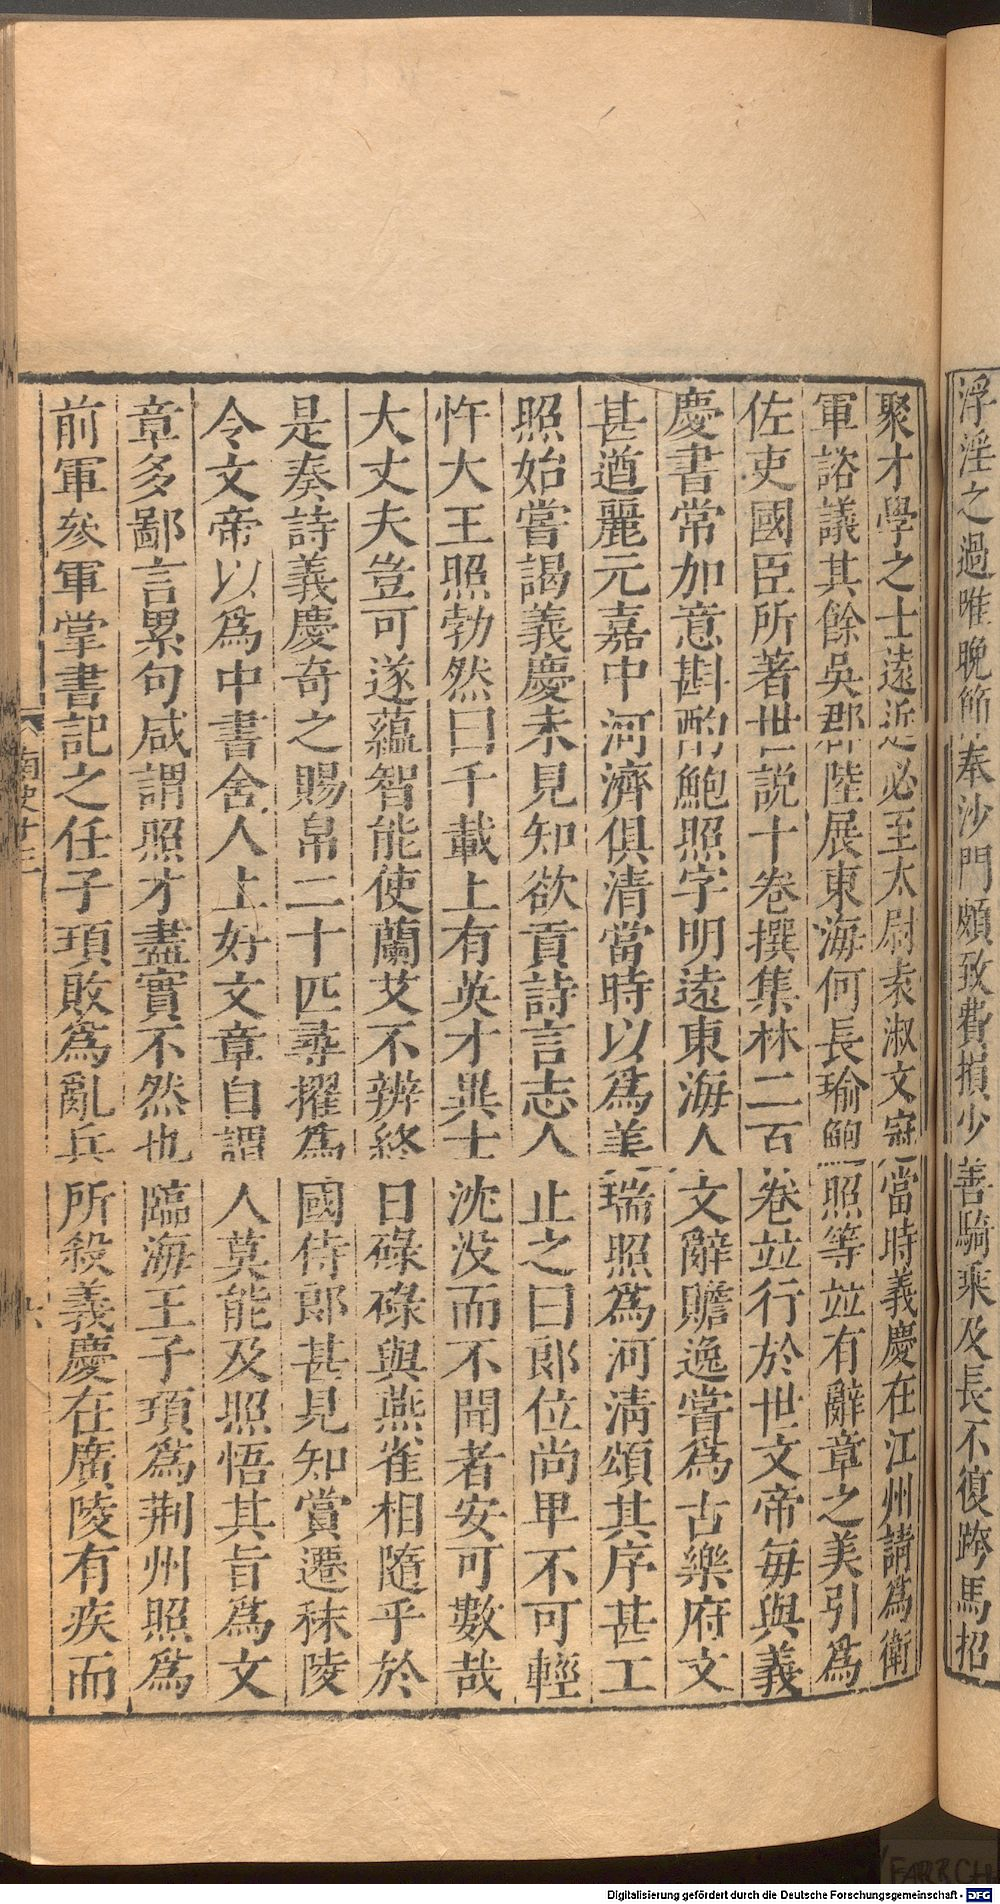 浮淫之過唯晚節奉沙門頗致費損少善騎乘及長不復跨馬招
聚才學之士遠近必至太尉袁淑文冠當時義慶在江州請為衛
軍諮議其餘吳郡陸展東海何長瑜鮑照等並有辭章之美引為
佐吏國臣所著世說十卷撰集林二百卷並行於世文帝每與義
慶書常加意斟酌鮑照字明遠東海人文辭贍逸嘗為古樂府文
甚遒麗元嘉中河濟俱清當時以為美瑞照為河清頌其序甚工
照始嘗謁義慶未見知欲貢詩言志人止之曰郎位尚卑不可輕
忤大王照勃然曰千載上有英才異士沈没而不聞者安可數哉
大丈夫豈可遂蘊智能使蘭艾不辨終日碌碌與燕雀相隨乎於
是奏詩義慶奇之賜帛二十匹尋擢為國侍郎甚見知賞遷秣陵
令文帝以為中書舍人上好文章自謂人莫能及照悟其旨為文
章多鄙言累句咸謂照才盡實不然也臨海王子頊為荆州照為
前軍叅軍掌書記之任子頊敗為亂兵所殺義慶在廣陵有疾而
南史十三
Digitalisierung gefördert durch die Deutsche Forschungsgemeinschaft - DFG